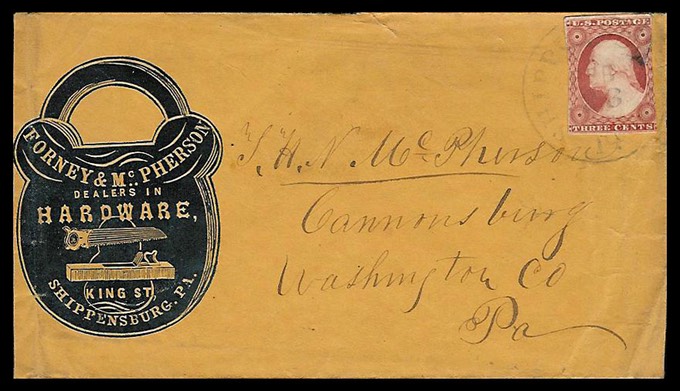 FORNEY & Mc PHERSON
DEALERS IN
HARDWARE,
KING ST
SHIPPENSBURG. PA.
U.S. POSTAGE
THREE CENTS
Mc Pherson
Cannonsburg
Washington Co
Pa